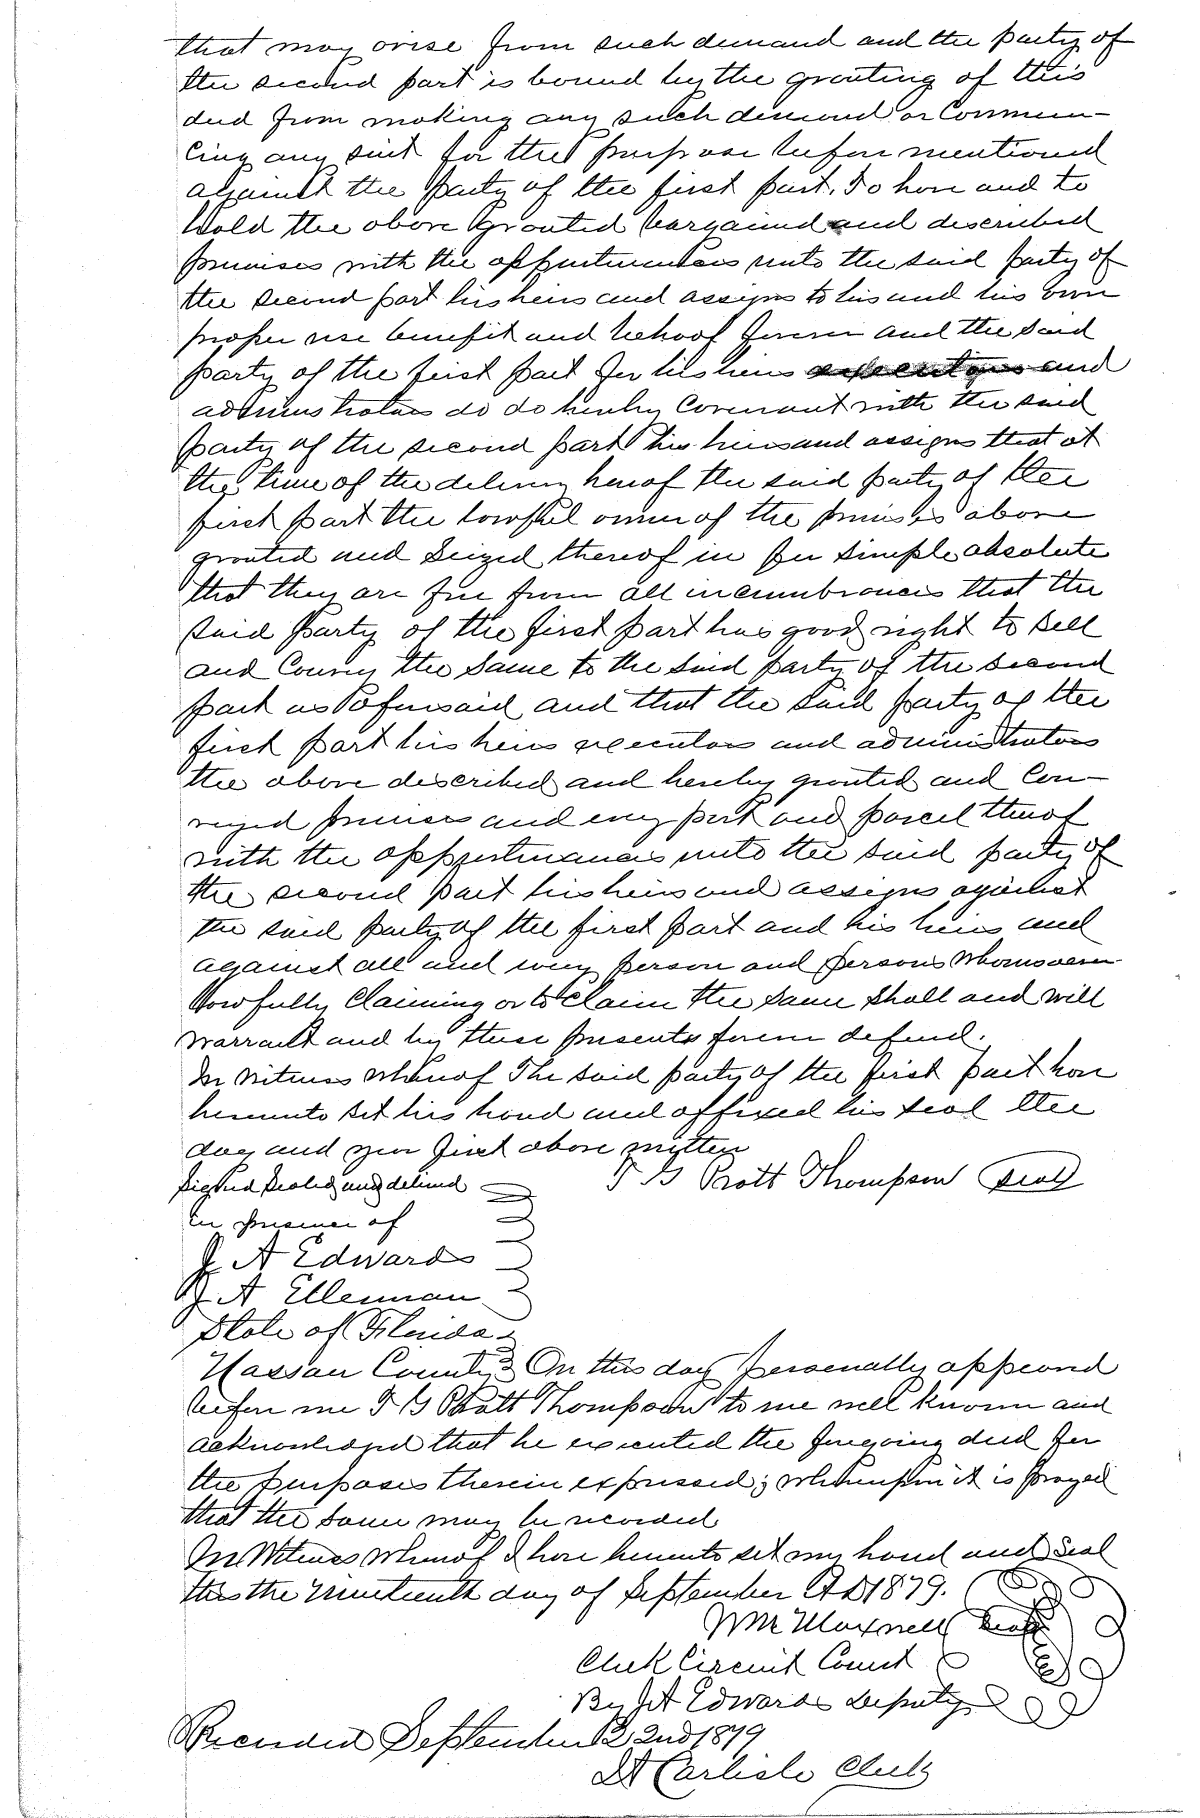 that may arise from such demand and the party of
the second part is bound by the granting of this
deed from making any such demand or Commen-
cing any suit for the purpose before mentioned
against the party of the first part. To have and to
hold the above granted bargained and described
premises with the appurtenances unto the said party of
the second part his heirs and assigns to his and his own
proper use benefit and behoof forever and the said
party of the first part for his heirs executors and
administrators do do hereby Covenant with the said
party of the second part his heirs and assigns that at
the time of the delivery hereof the said party of the
first part the lawful owner of the premises above
granted and Seized thereof in fee simple absolute
that they are free from all incumbrances that the
said party of the first part has good right to sell
and Convey the same to the said party of the second
part as aforesaid and that the said party of the
first part his heirs executors and administrators
the above described and hereby granted and Con-
veyed premises and every part and parcel thereof
with the appurtenances unto the said party of
the second part his heirs and assigns against
the said party of the first part and his heirs and
against all and every person and persons whomsoever
lawfully Claiming or to Claim the same shall and will
warrant and by these presents forever defend.
In witness whereof The said party of the first part have
hereunto set his hand and affixed his seal the
day and year first above written
Signed Sealed and delivered T G Pratt Thompson Seal
in presence of
J A Edwards
J A Ellerman
State of Florida
Nassau County On this day personally appeared
before me T G Pratt Thompson to me well known and
acknowledged that he executed the foregoing deed for
the purposes therein expressed; whereupon it is prayed
that the same may be recorded
In Witness Whereof I have hereunto set my hand and Seal
this the Nineteenth day of September AD 1879.
Wm Maxwell Seal
Clerk Circuit Court
By J A Edwards Deputy
Recorded September 22nd 1879
Carlisle Clerk